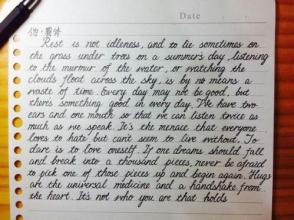 Date
Rest is not idleness, and to lie sometimes on
the grass under trees on a summer's day, listening
to the murmur of the water, or watching the
clouds float across the sky, is by no means a
waste of time. Every day may not be good, but
there's something good in every day. We have two
ears and one mouth so that we can listen twice as
much as we speak. It's the menace that everyone
loves to hate but can't seem to live without. To
dare is to love oneself. If one dreams should fall
and break into a thousand pieces, never be afraid
to pick one of those pieces up and begin again. Hugs
are the universal medicine and a handshake from
the heart. It's not who you are that holds